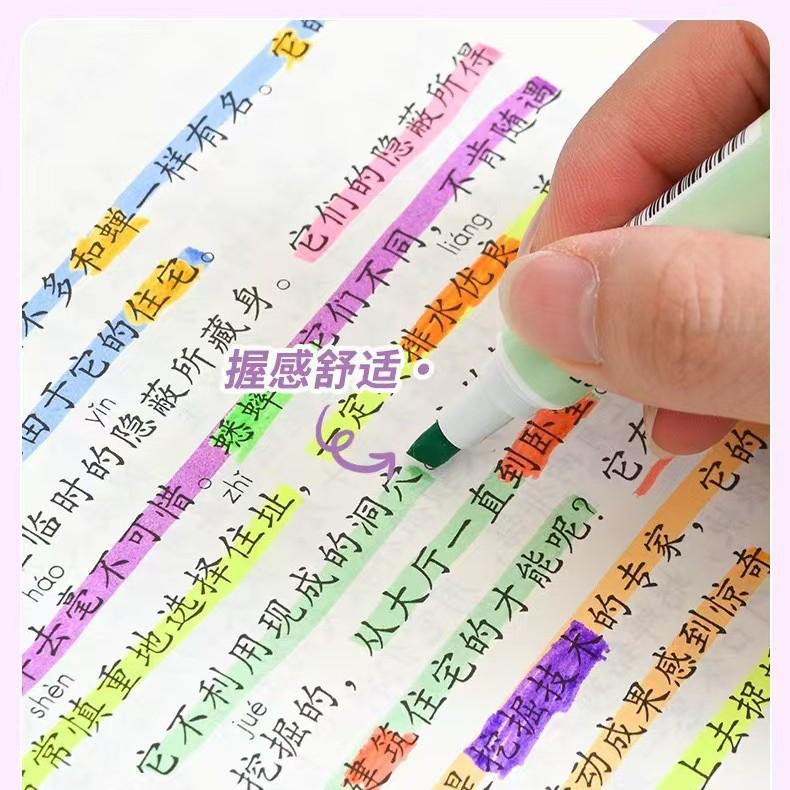 不多和蝉一样有名。它的
由于它的住宅。
yǐn
临时的隐蔽所藏身。它们的隐蔽所得
háo
去毫不可惜。蟋蟀它们不同，不肯随遇
shèn zhǐ liáng
常慎重地选择住址，定排水优良
它不利用现成的洞穴
jué
挖掘的，从大厅一直到卧
建筑住宅的才能呢？它
是挖掘技术的专家，它的
动成果感到惊奇
上去捉
握感舒适